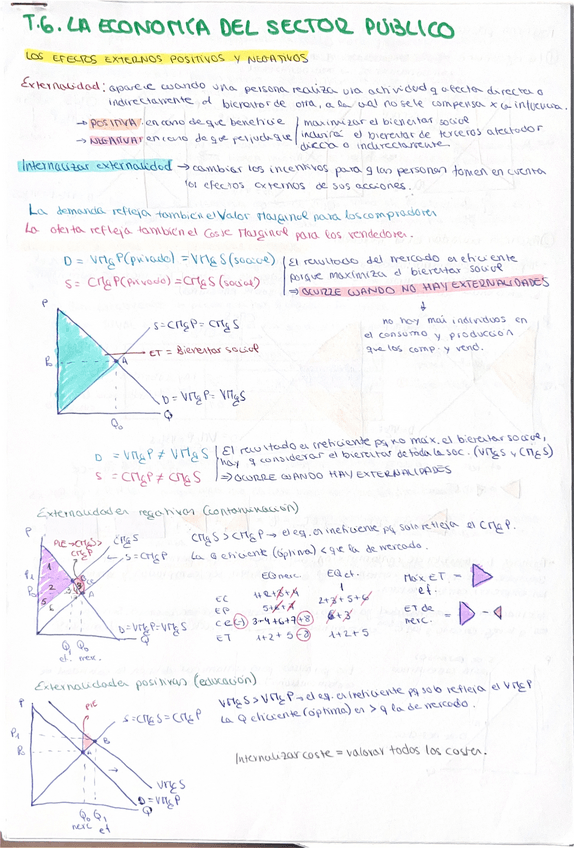 T.6. LA ECONOMÍA DEL SECTOR PÚBLICO
LOS EFECTOS EXTERNOS POSITIVOS Y NEGATIVOS
Externalidad: aparece cuando una persona realiza una actividad q afecta directa o
indirectamente el bienestar de otra, a la cual no se le compensa x la influencia.
→ POSITIVA: en caso de que beneficie | maximizar el bienestar social
→ NEGATIVA: en caso de que perjudique | incluirá el bienestar de terceros afectados
directa o indirectamente.
Internalizar externalidad → cambiar los incentivos para q las personas tomen en cuenta
los efectos externos de sus acciones.
La demanda refleja también el Valor Marginal para los compradores
La oferta refleja también el Coste Marginal para los vendedores.
D = VMgP (privado) = VMgS (social) | El resultado del mercado es eficiente
porque maximiza el bienestar social
S = CMgP (privado) = CMgS (social) | ⇒ OCURRE CUANDO NO HAY EXTERNALIDADES
no hay más individuos en
el consumo y producción
que los comp. y vend.
P
S = CMgP = CMgS
ET = Bienestar social
P₀
A
D = VMgP = VMgS
Q₀
Q
D = VMgP ≠ VMgS | El resultado es ineficiente pq no máx. el bienestar social,
hay q considerar el bienestar de toda la soc. (VMgS y CMgS)
S = CMgP ≠ CMgS | ⇒ OCURRE CUANDO HAY EXTERNALIDADES
Externalidades negativas (contaminación)
P
PIE → CMgS >
CMgP
CMgS
S = CMgP
CMgS > CMgP → el eq. es ineficiente pq solo refleja el CMgP.
La Q eficiente (óptima) < que la de mercado.
P₁
P₀
D = VMgP = VMgS
Q₁ Q₀
ef. merc.
Q
EQ merc. EQ ef.
EC 1+2+3+4
EP 5+6+7
CE (-) 3+4+6+7+8
ET 1+2+5 -8 1+2+5
Máx ET =
ef.
ET de
merc. = -
Externalidades positivas (educación)
P
PIE
S = CMgS = CMgP
VMgS > VMgP → el eq. es ineficiente pq solo refleja el VMgP
La Q eficiente (óptima) es > q la de mercado.
P₁
P₀
B
A
Internalizar coste = valorar todos los costes.
VMgS
D = VMgP
Q₀ Q₁
merc ef
Q